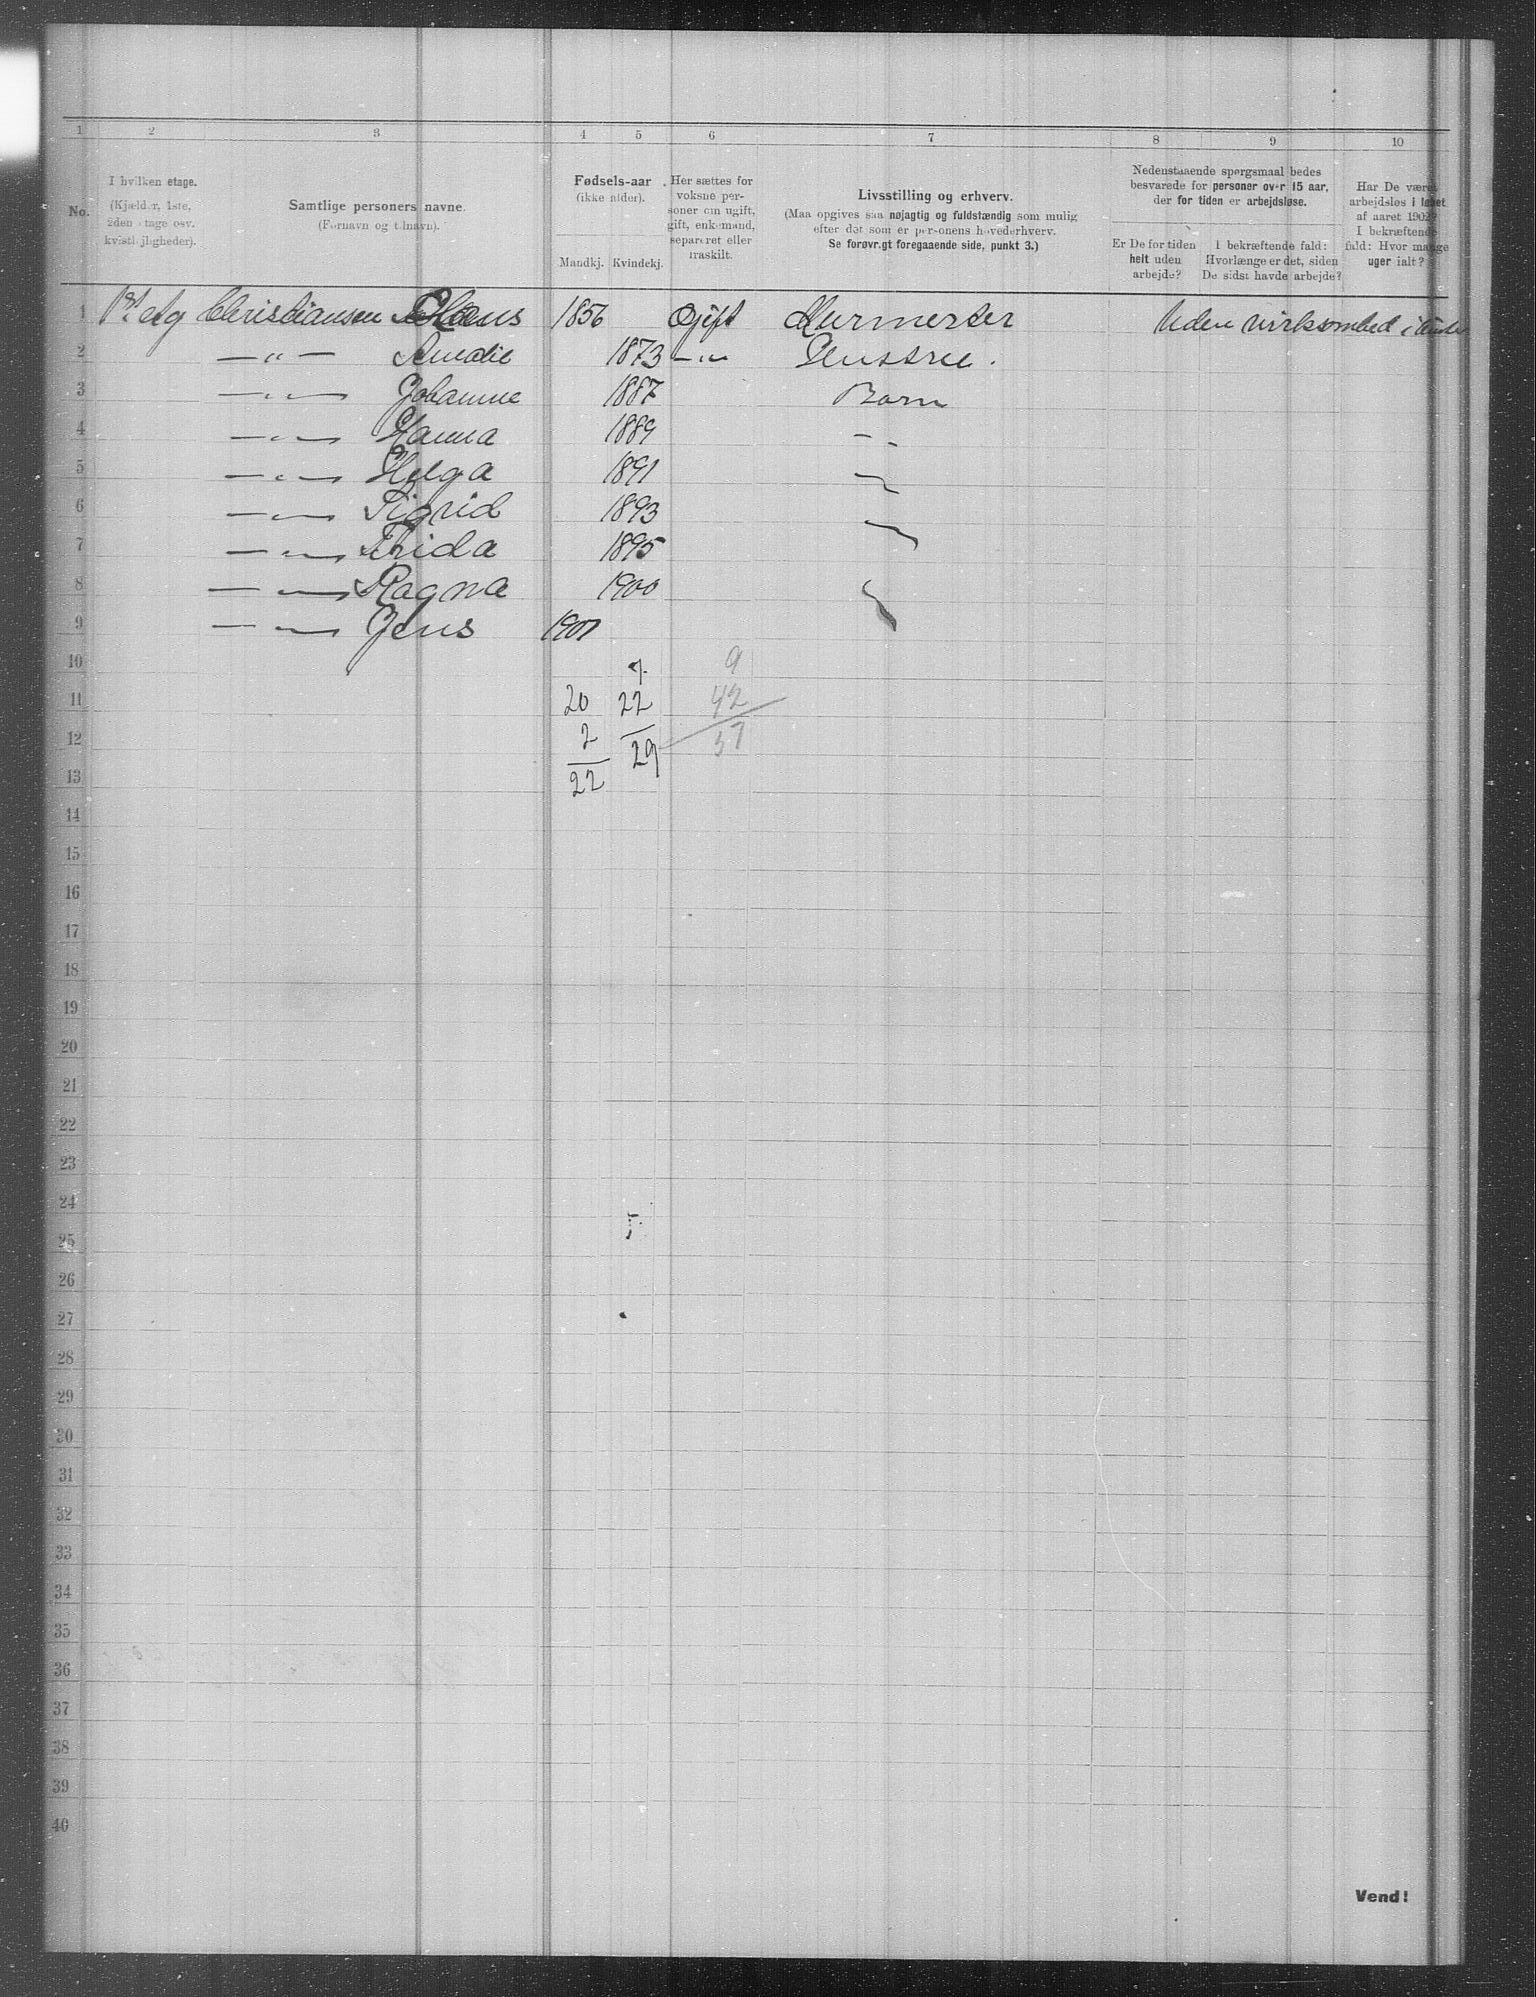 1 2 3 4 5 6 7 8 9 10
No.
I hvilken etage. (Kjælder, 1ste, 2den etage osv. kvistleiligheder).
Samtlige personers navne. (Fornavn og tilnavn).
Fødsels-aar (ikke alder).
Mandkj. Kvindekj.
Her sættes for voksne personer om ugift, gift, enkemand, separeret eller fraskilt.
Livsstilling og erhverv.
(Maa opgives saa nøjagtig og fuldstændig som mulig
efter det som er personens hovederhverv.
Se forøvrigt foregaaende side, punkt 3.)
Nedenstaaende spørgsmaal bedes
besvarede for personer over 15 aar,
der for tiden er arbejdsløse.
Er De for tiden helt uden arbejde?
I bekræftende fald: Hvorlænge er det, siden De sidst havde arbejde?
Har De været arbejdsløs i løbet af aaret 1902? I bekræftende fald: Hvor mange uger ialt?
1 1st etg Christiansen Hans 1856 Gift Murmester Uden virksomhed i
2 — " — Amalie 1873 — " — Hustru.
3 — " — Johanne 1887 Barn
4 — " — Hanna 1889 — " —
5 — " — Helga 1891
6 — " — Sigrid 1893
7 — " — Frida 1895
8 — " — Ragna 1900
9 — " — Jens 1901
10 7 9
11 20 22 42
12 2 29 51
13 22
14
15
16
17
18
19
20
21
22
23
24
25
26
27
28
29
30
31
32
33
34
35
36
37
38
39
40
Vend!